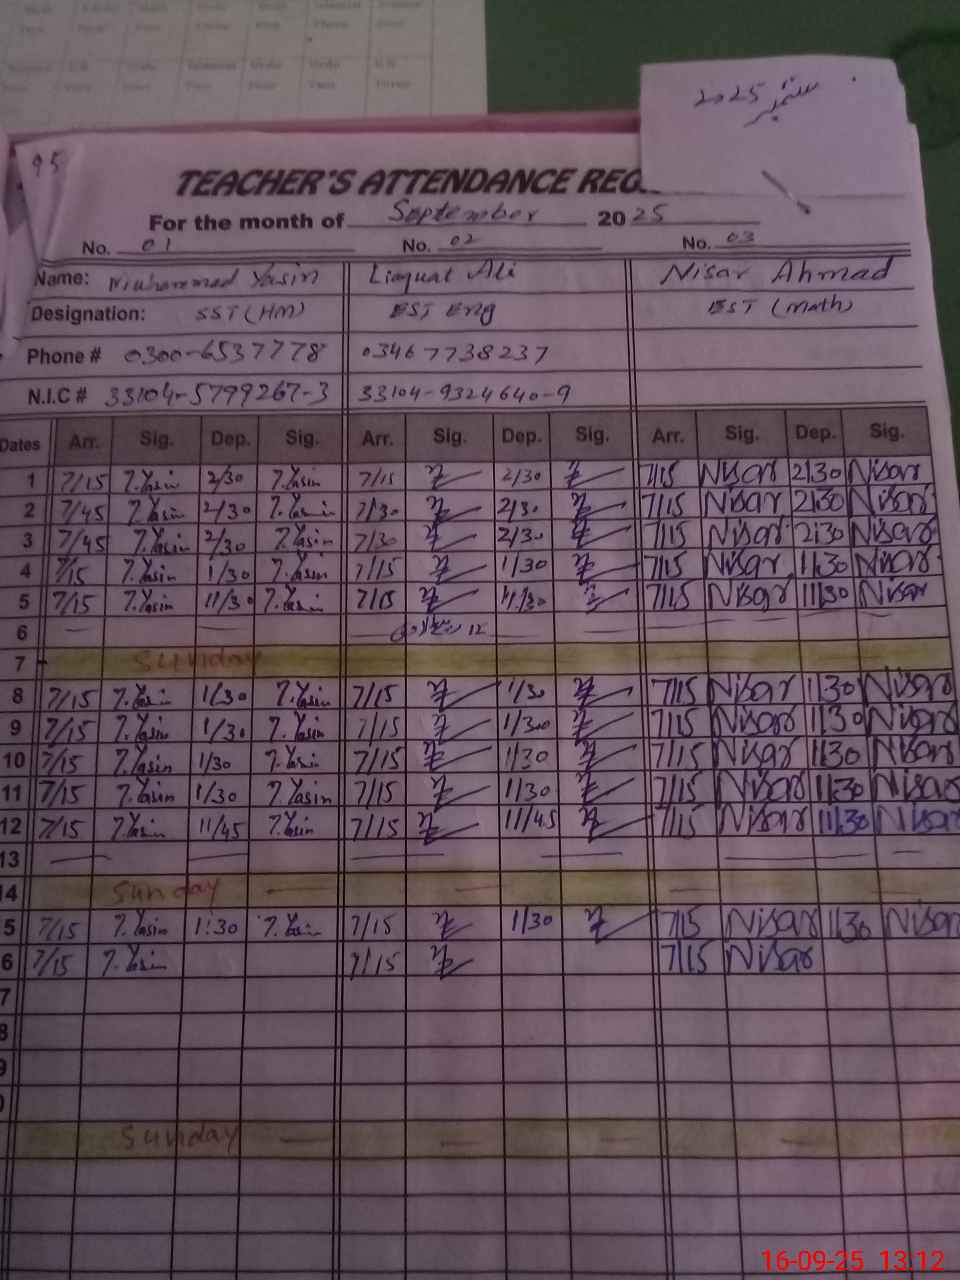 ستمبر 2025
95
TEACHER'S ATTENDANCE REG
For the month of September 2025
No. 01 No. 02 No. 03
Name: Muhammad Yasin Liaquat Ali Nisar Ahmad
Designation: SST (HM) EST Eng EST (Math)
Phone # 0300-6537778 03467738237
N.I.C # 33104-5799267-3 33104-9324640-9
Dates Arr. Sig. Dep. Sig. Arr. Sig. Dep. Sig. Arr. Sig. Dep. Sig.
1 7/15 7.Yasin 2/30 7.Yasin 7/15 2/30 7/15 Nisar 2/30 Nisar
2 7/45 7.Yasin 2/30 7.Yasin 7/30 2/30 7/15 Nisar 2/30 Nisar
3 7/45 7.Yasin 2/30 7.Yasin 7/30 2/30 7/15 Nisar 2:30 Nisar
4 7/15 7.Yasin 1/30 7.Yasin 7/15 1/30 7/15 Nisar 11:30 Nisar
5 7/15 7.Yasin 11/30 7.Yasin 7/15 11/30 7/15 Nisar 11/30 Nisar
6 — — 12 — — — —
7 Sunday
8 7/15 7.Yasin 1/30 7.Yasin 7/15 1/30 7/15 Nisar 1/30 Nisar
9 7/15 7.Yasin 1/30 7.Yasin 7/15 1/30 7/15 Nisar 1/30 Nisar
10 7/15 7.Yasin 1/30 7.Yasin 7/15 1/30 7/15 Nisar 1/30 Nisar
11 7/15 7.Yasin 1/30 7.Yasin 7/15 1/30 7/15 Nisar 1/30 Nisar
12 7/15 7.Yasin 11/45 7.Yasin 7/15 11/45 7/15 Nisar 11:30 Nisar
13 — — — — — —
14 Sunday — — —
5 7/15 7.Yasin 1:30 7.Yasin 7/15 1/30 7/15 Nisar 1/30 Nisar
6 7/15 7.Yasin 7/15 7/15 Nisar
7
8
9
0
Sunday — — — —
16-09-25 13:12